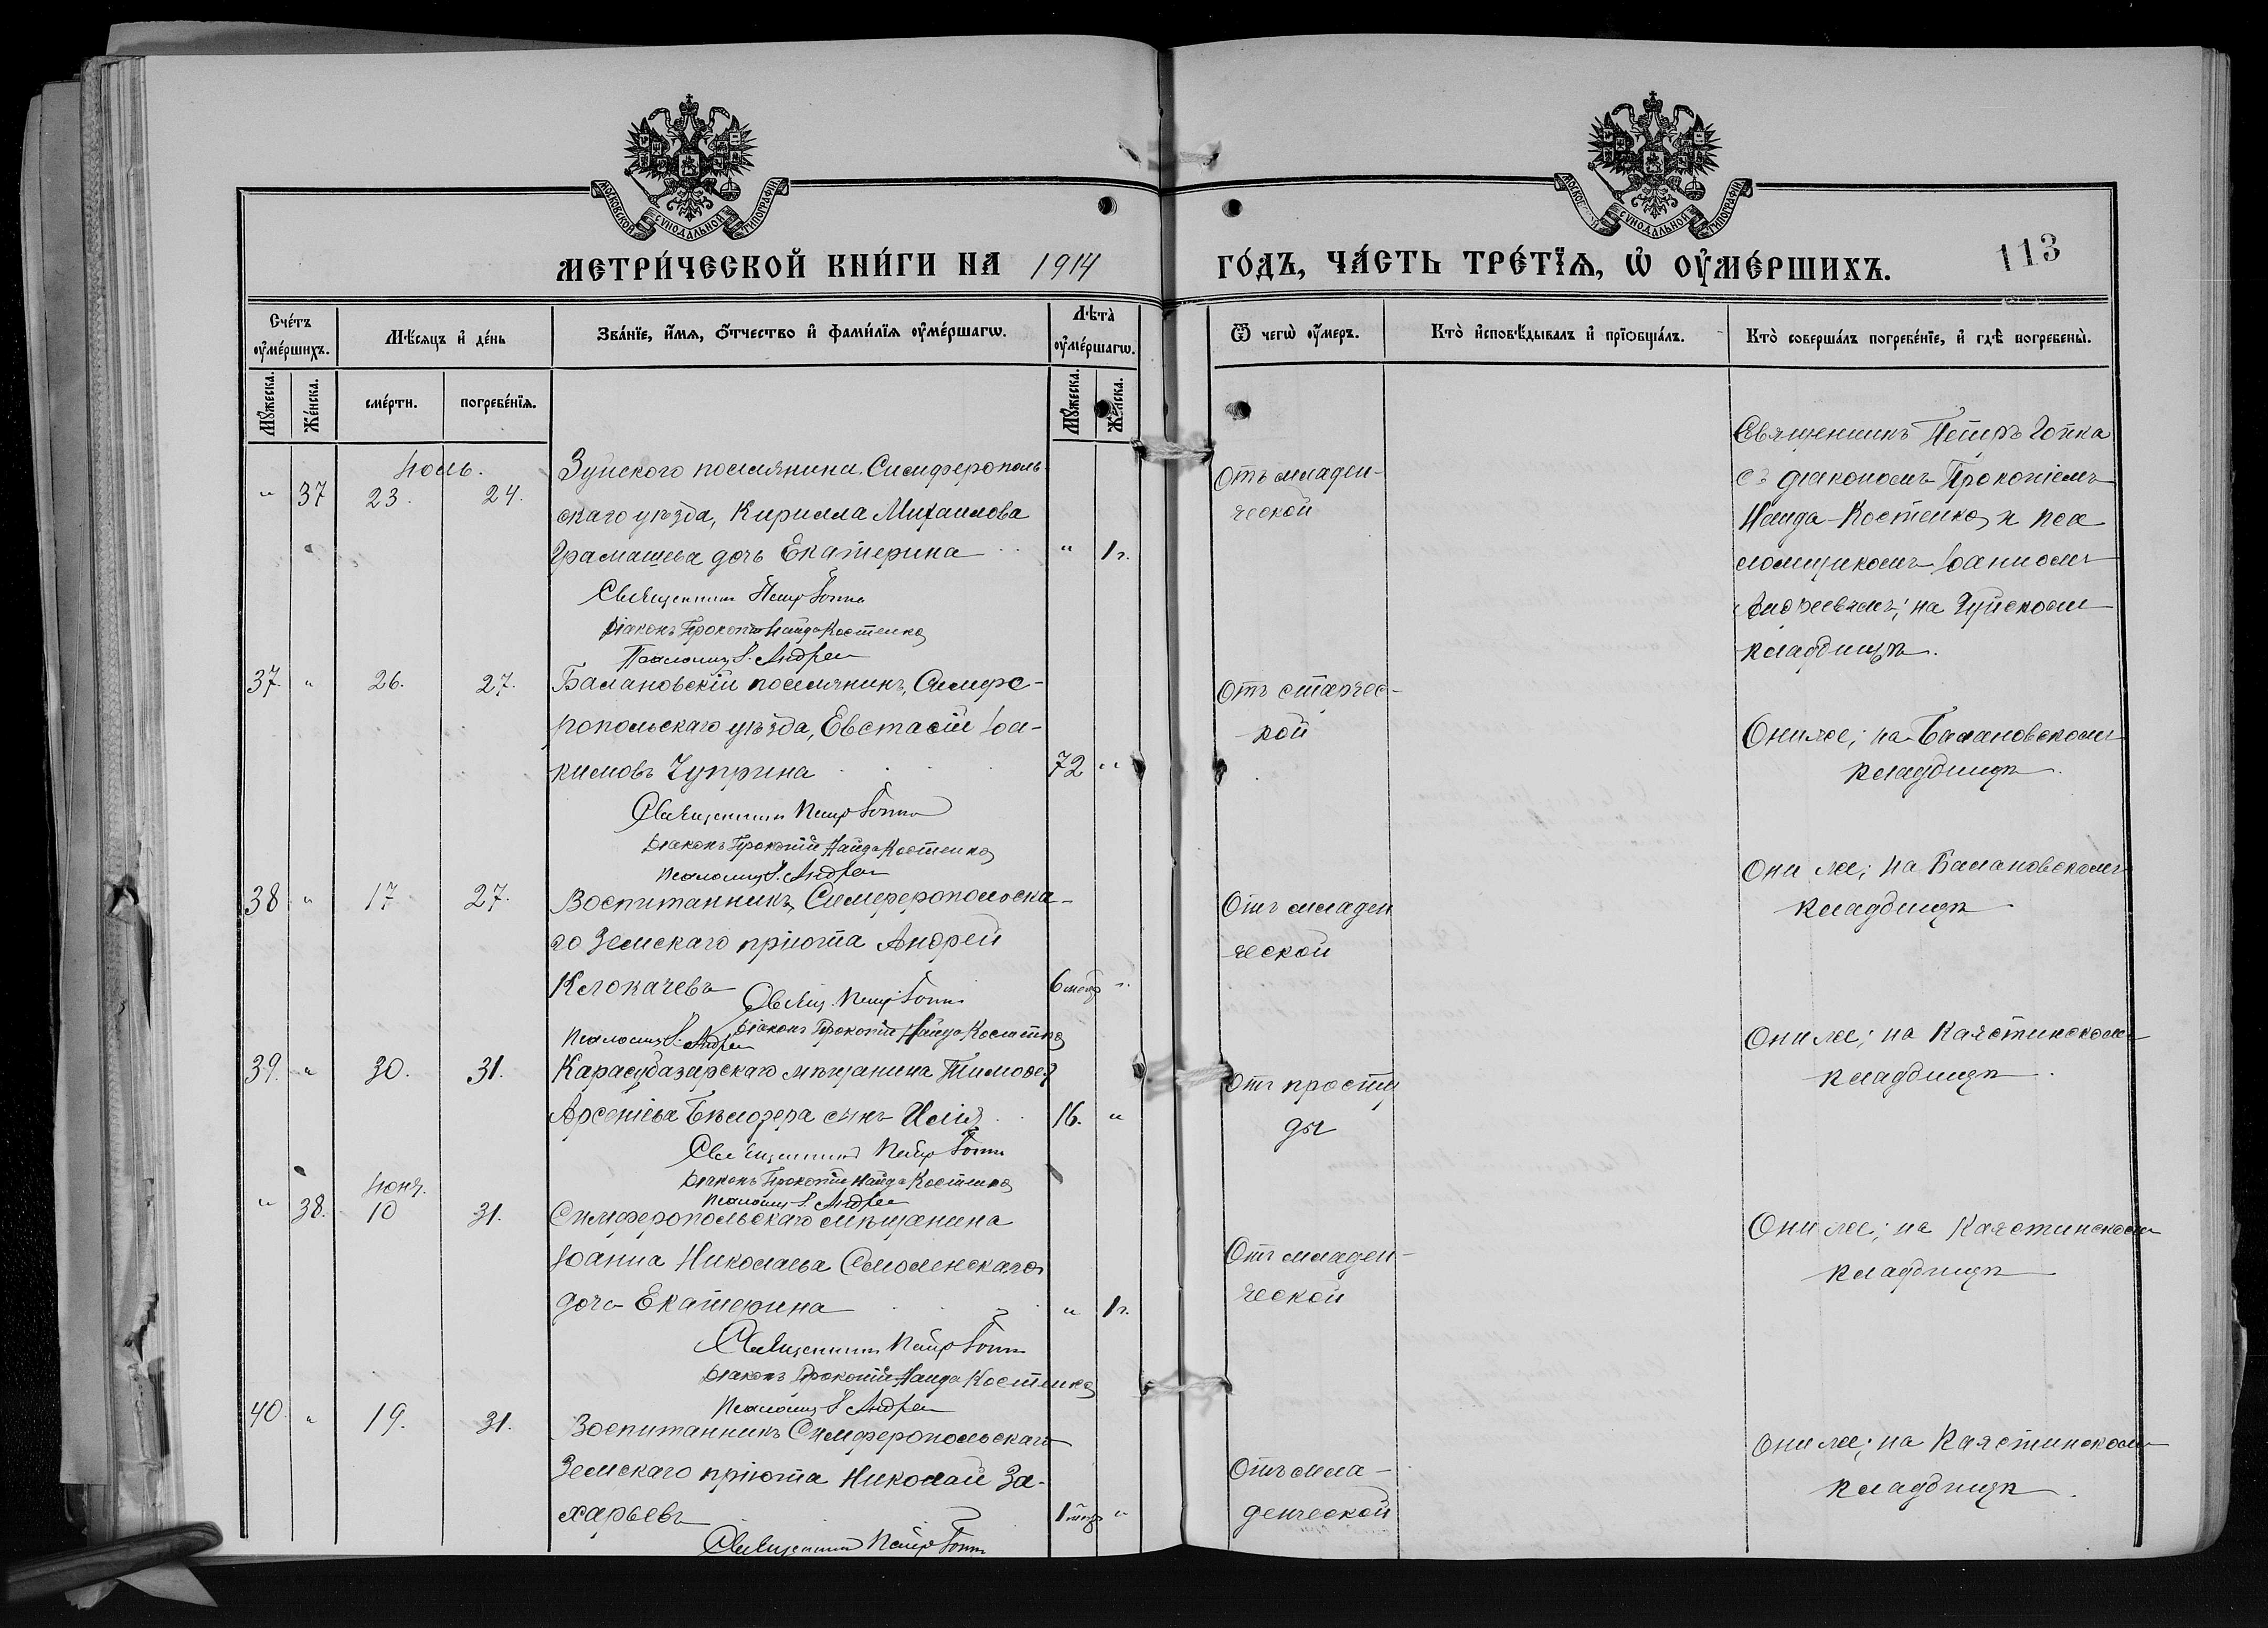 МОСКОВСКОЙ СУНОДАЛЬНОЙ ТИПОГРАФІИ
МОСКОВСКОЙ СУНОДАЛЬНОЙ ТИПОГРАФІИ
МЕТРИ́ЧЕСКОЙ КНИ́ГИ НА 1914 ГО́ДЪ, ЧА́СТЬ ТРЕ́ТЇѦ, Ѡ ОУ҆МЕ́РШИХЪ.
113
Сче́тъ оу҆ме́ршихъ.
Мѣ́сяцъ и҆ де́нь
Зва́нїе, и҆́мя, ѻ҆́тчество и҆ фами́лїя оу҆ме́ршагѡ.
Лѣ́та оу҆ме́ршагѡ.
Ѿ чегѡ̀ оу҆́меръ.
Кто̀ и҆сповѣ́дывалъ и҆ прїѡбща́лъ.
Кто̀ соверша́лъ погребе́нїе, и҆ гдѣ̀ погребены̀.
Мꙋ́жеска. Же́нска. сме́рти. погребе́нїя. Мꙋ́жеска. Же́нска.
Іюль.
" 37 23. 24.
Зуйского поселянина Симферополь
скаго уѣзда, Кирилла Михаилова
Грамашева дочь Екатерина " 1 г.
Священникъ Петръ
Діаконъ Прокопій Найда Костенко
Псаломщ. І. Андрее
Отъ младен-
ческой
Священникъ Петръ Гопка
съ діакономъ Прокопіемъ
Найда-Костенко и пса
ломщикомъ Іоанномъ
Андреевымъ; на Зуйскомъ
кладбищѣ.
37. " 26. 27.
Балановскій поселянинъ, Симфе-
ропольскаго уѣзда, Евстафій Іоа-
кимовъ Чуприна 72 "
Священникъ Петръ
Діаконъ Прокопій Найда Костенко
Псаломщ. І. Андрее
Отъ старчес-
кой
Они же; на Балановскомъ
кладбищѣ.
38 " 17 27.
Воспитанникъ Симферопольска-
го Земскаго пріюта Андрей
Клокачевъ 6 мсцъ "
Свящ. Петръ
Діаконъ Прокопій Найда Костенко
Псаломщ. І. Андрее
Отъ младен
ческой
Они же; на Балановскомъ
кладбищѣ
39. " 30. 31.
Карасубазарскаго мѣщанина Тимофея
Арсеніева Бѣлозера сынъ Илія 16. "
Священникъ Петръ
Діаконъ Прокопій Найда Костенко
Псаломщ. І. Андрее
Отъ просту
ды
Они же; на Каястинскомъ
кладбищѣ.
Іюня.
" 38. 10 31.
Симферопольскаго мѣщанина
Іоанна Николаева Смоленскаго
дочь Екатерина " 1 г.
Священникъ Петръ
Діаконъ Прокопій Найда Костенко
Псаломщ. І. Андрее
Отъ младен-
ческой
Они же; на Каястинскомъ
кладбищѣ
40. " 19. 31.
Воспитанникъ Симферопольскаго
Земскаго пріюта Николай За-
харьевъ 1 мсцъ "
Священникъ Петръ
Отъ мла-
денческой
Они же; на Каястинскомъ
кладбищѣ.